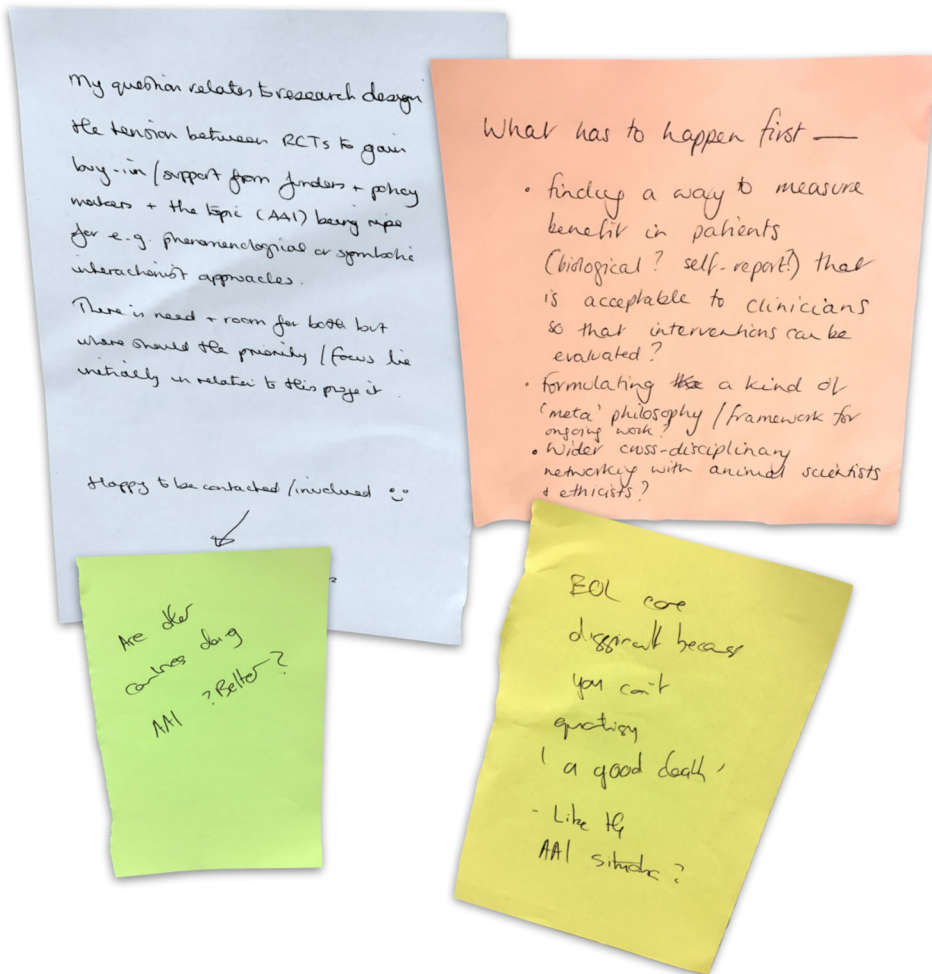 My question relates to research design
the tension between RCTs to gain
buy-in / support from funders + policy
makers + the topic (AAI) being ripe
for e.g. phenomenological or symbolic
interactionist approaches.
There is need + room for both but
where should the priority / focus lie
initially in relation to this project.
Happy to be contacted / involved
What has to happen first —
• finding a way to measure
benefit in patients
(biological? self-report?) that
is acceptable to clinicians
so that interventions can be
evaluated?
• formulating a kind of
'meta' philosophy / framework for
ongoing work?
• Wider cross-disciplinary
networking with animal scientists
+ ethicists?
Are other
countries doing
AAI ? Better?
EOL care
difficult because
you can't
quantify
'a good death'
- Like the
AAI situation?